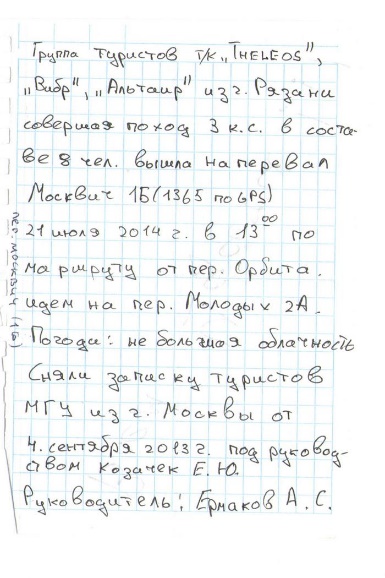 Группа туристов т/к „THELEOS”,
„Вибр”, „Альтаир” из г. Рязани
совершая поход 3 к.с. в соста-
ве 8 чел. вышла на перевал
Москвич 1Б (1365 по GPS)
21 июля 2014 г. в 13⁰⁰ по
маршруту от пер. Орбита.
идем на пер. Молодых 2А.
Погода: не большая облачность
Сняли записку туристов
МГУ из г. Москвы от
4. сентября 2013 г. под руковод-
ством Козачек Е.Ю.
Руководитель: Ермаков А.С.
пер. Москвич (1Б)